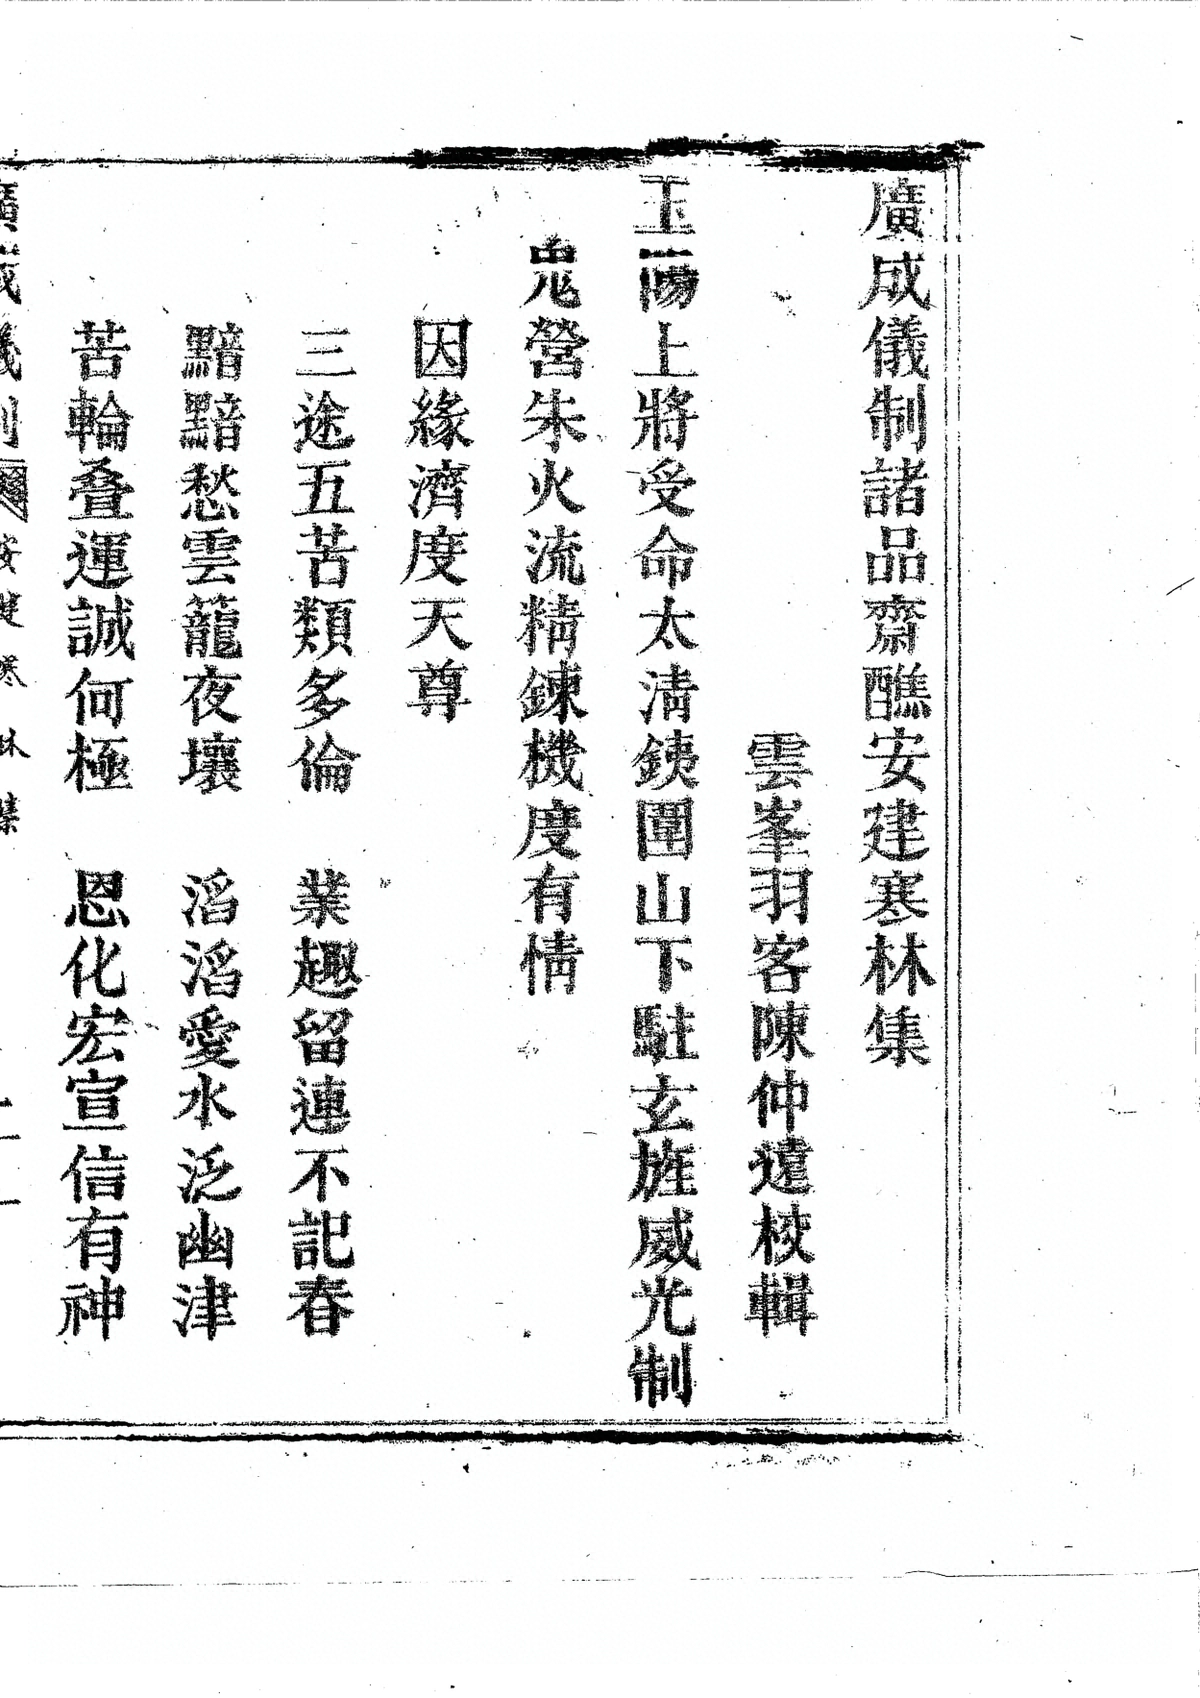 廣成儀制諸品齋醮安建寒林集
雲峯羽客陳仲遠校輯
玉陽上將受命太淸鉄圍山下駐玄旌威光制
鬼營朱火流精鍊機度有情
因緣濟度天尊
三途五苦類多倫 業趣留連不記春
黯黯愁雲籠夜壤 滔滔愛水泛幽津
苦輪叠運誠何極 恩化宏宣信有神
廣成儀制 安建寒林集